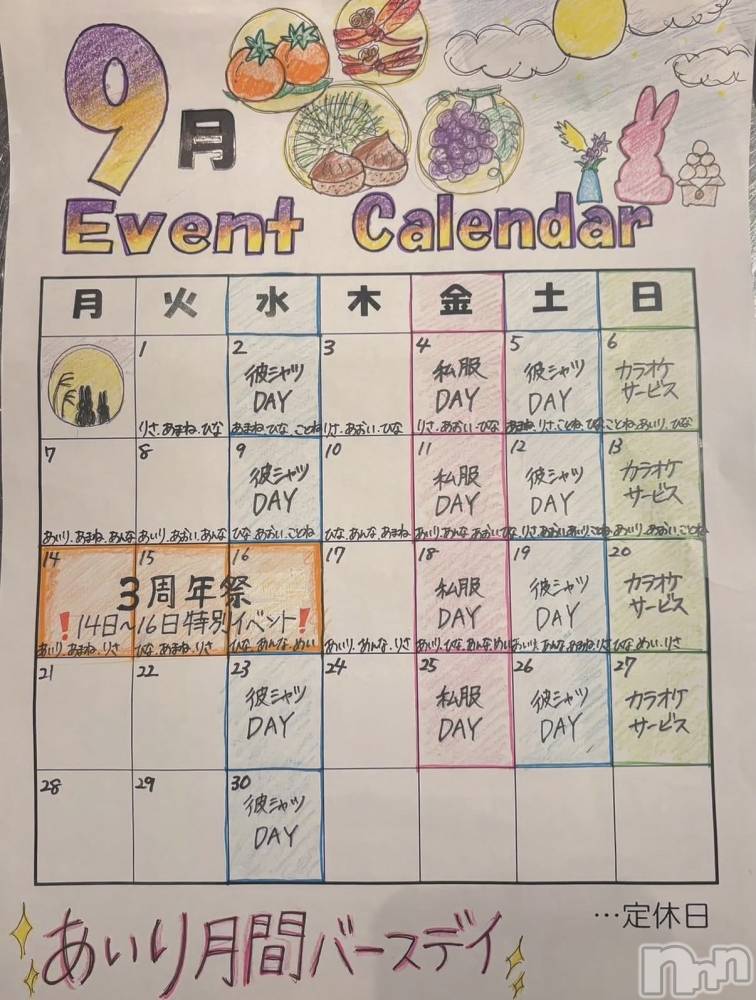 9月
Event Calendar
月 火 水 木 金 土 日
1 2 3 4 5 6
彼シャツ DAY 私服 DAY 彼シャツ DAY カラオケサービス
りさ、あまね、ひな あまね、ひな、ことね りさ、あおい、ひな りさ、あおい、ひな あまね、りさ、ことね、ひな ことね、あいり、ひな
7 8 9 10 11 12 13
彼シャツ DAY 私服 DAY 彼シャツ DAY カラオケサービス
あいり、あまね、あんな あいり、あおい、あんな ひな、あおい、ことね ひな、あんな、あまね あいり、あんな、あおい、ひな りさ、あおい、あいり、ことね あいり、あおい、ことね
14 15 16 17 18 19 20
3周年祭
❗14日~16日特別イベント❗
私服 DAY 彼シャツ DAY カラオケサービス
あいり、あまね、りさ ひな、あまね、りさ ひな、あんな、めい あいり、あんな、りさ あいり、ひな、あんな、めい あいり、あんな、あまね、りさ ひな、めい、りさ
21 22 23 24 25 26 27
彼シャツ DAY 私服 DAY 彼シャツ DAY カラオケサービス
28 29 30
彼シャツ DAY
…定休日
あいり月間バースデイ
nnn